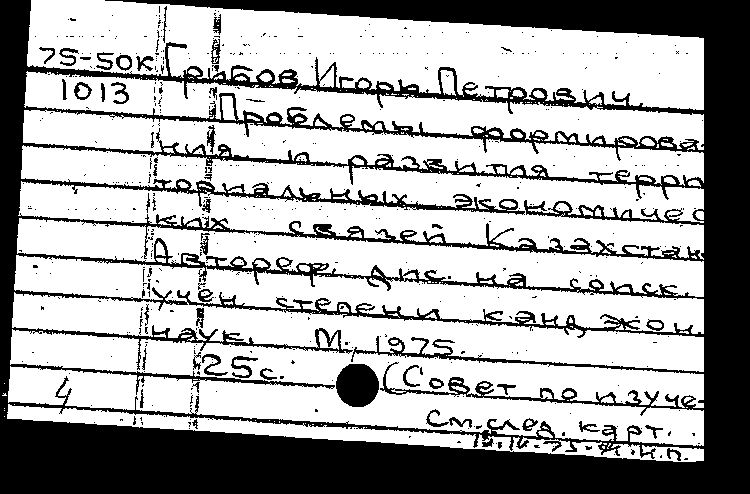 75-50к Грибов, Игорь Петрович.
1013 Проблемы формирова-
ния и развития терри
ториальных экономичес
ких связей Казахстан
Автореф. дис. на соиск.
учен. степени канд. экон.
наук. М., 1975.
25с. (Совет по изуче-
4
См. след. карт.